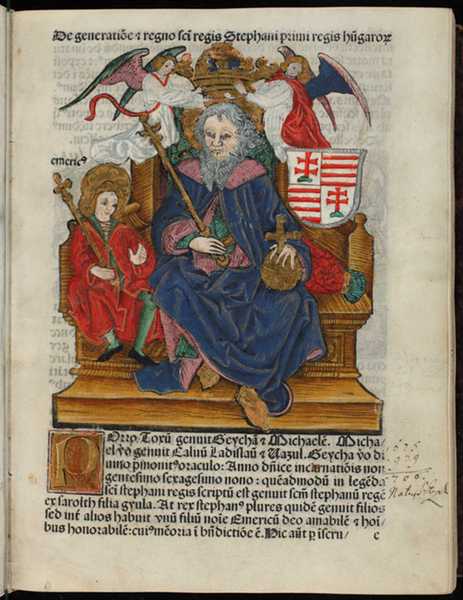 De generatiõe ⁊ regno sci̅ regis Stephani primi regis hũgaroꝝ
emericꝰ
POrro Toxũ genuit Geychã ⁊ Michaelẽ. Micha⸗
el v̊o genuit Caluũ Ladislaũ ⁊ Vazul. Geycha v̊o di
uino p̃monitꝰ oraculo: Anno dñice incarnatiõis non
gentesimo sexagesimo nono: quẽadmodũ in legẽda
sci̅ stephani regis scriptũ est genuit scm̅ stephanũ regẽ
ex sarolth filia gyula. At rex stephanꝰ plures quidẽ genuit filios
sed inť alios habuit vnũ filiũ noĩe Emericũ deo amabilẽ ⁊ hoĩ
bus honorabilẽ: cuiꝰ mẽoria ĩ bñdictiõe ẽ. Hic aũt ꝑ iscru/
c